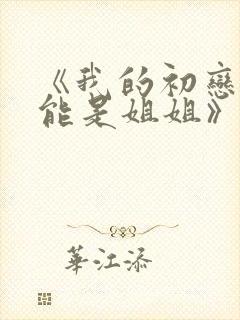 《我的初戀
能是姐姐》
華江添